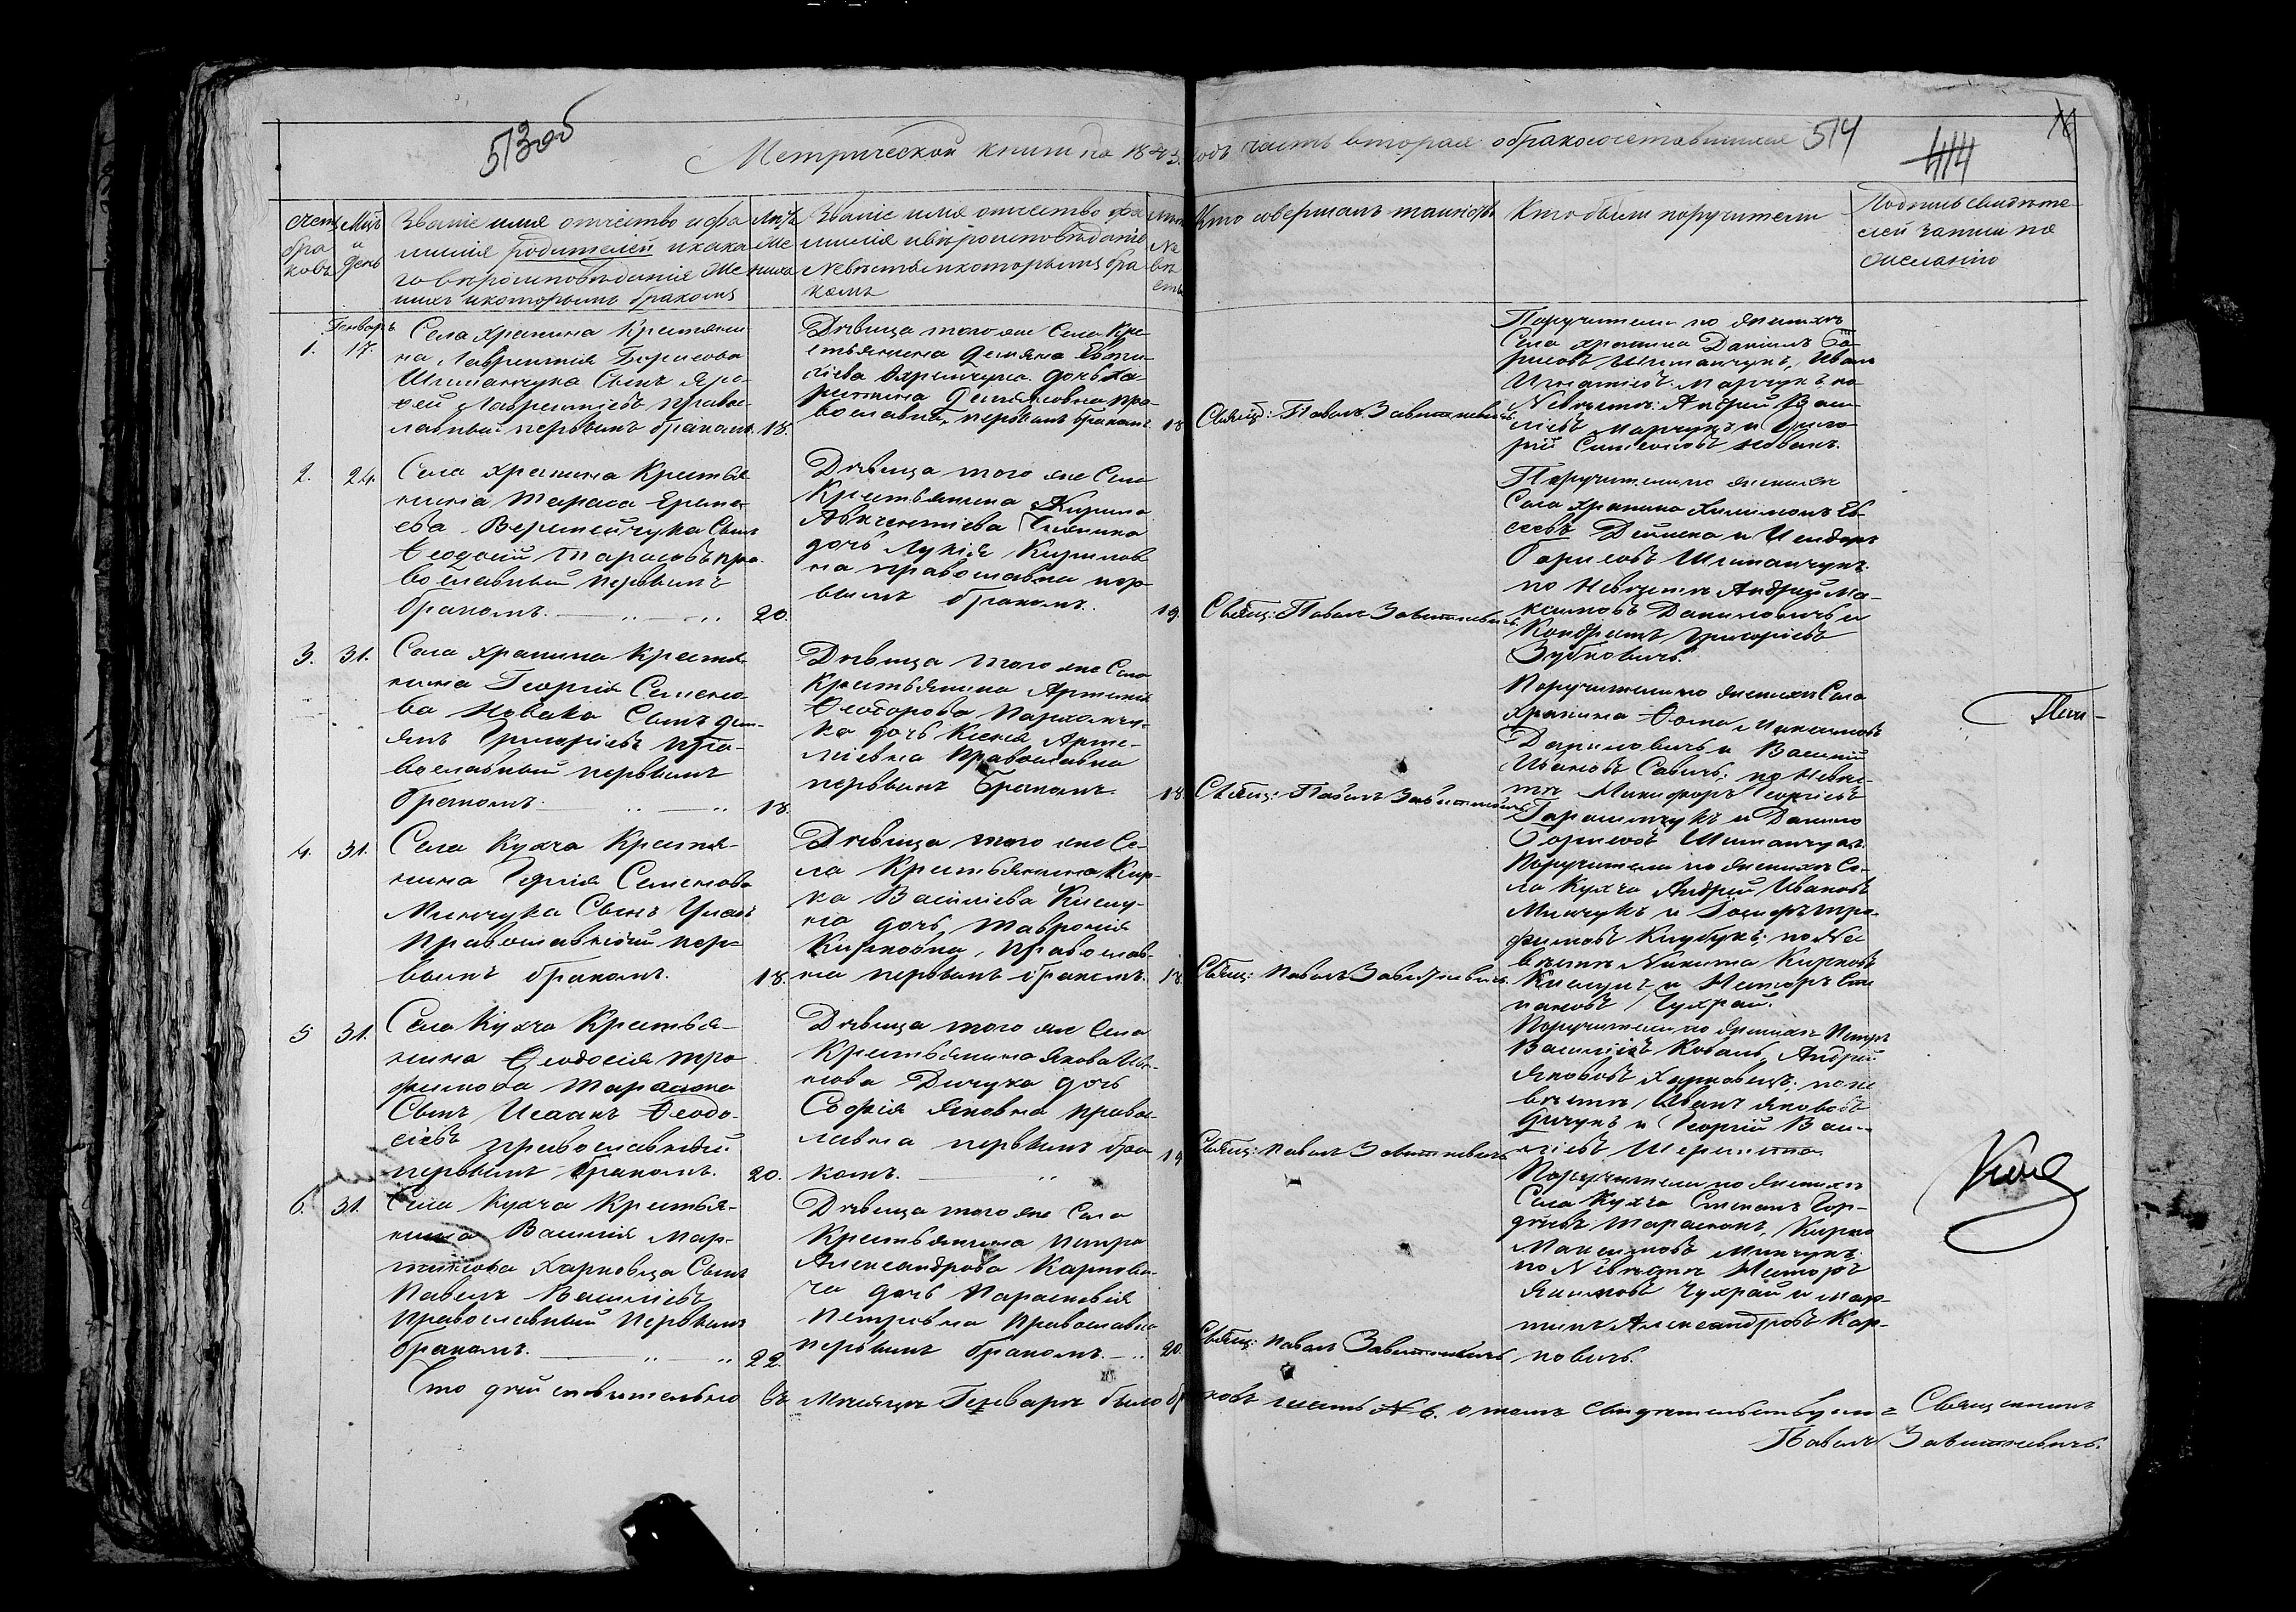 513 об
514
414
Метрической книги на 1843 годъ часть вторая о бракосочетавшихся
Счетъ
бра
ковъ
Мцъ
и
день
Званіе имя отчество и фа
милія родителей и како
го вѣроисповѣданія же
нихъ и которымъ бракомъ
Лѣта
же
ниха
Званіе имя отчество фа
милія и вѣроисповѣданіе
невѣсты и которымъ бра
комъ
Лѣта
не
вѣ
сты
Кто совершалъ таинство
Кто были поручители
Подпись свидѣте
лей записи по
желанію
1.
Генварь
17.
Села Храпина Крестьяни
на Лаврентія Борисова
Шиманчука Сынъ Еро
фей Лаврентіевъ право
лавный первымъ бракомъ.
18.
Дѣвица того же Села Кре
стьянина Демяна Евти
хіева дочь Ха
ритина Демяновна пра
вославна, первымъ бракомъ.
18
Свящ: Павелъ Завитневичъ
Поручители по женихѣ
Села Храпина Даніилъ Бо
рисовъ Шиманчукъ, Иванъ
Игнатіевъ Марчукъ по
Невѣстѣ: Андрей Васи
ліевъ Марчукъ и Григо
рій Симеоновъ Новакъ.
2.
24.
Села Храпина Крестья
нина Тараса Ереме
ева Веремейчука Сынъ
Ѳеодосій Тарасовъ пра
вославный первымъ
бракомъ.
20.
Дѣвица того же Села
Крестьянина Кирила
Авксентіева
дочь Лукія Кирилов
на православна пер
вымъ бракомъ.
19.
Свящ: Павелъ Завитневичъ
Поручители по женихѣ
Села Храпина Филимонъ Ев
сеевъ и
Борисовъ Шиманчукъ
по Невѣстѣ Андрей Ма
ксимовъ Даниловичъ и
Кондратъ Григоріевъ
Зубковичъ.
3.
31.
Села Храпина Крестья
нина Георгія Семено
ва Новака Сынъ Дем
янъ Григоріевъ пра
вославный первымъ
бракомъ
18.
Дѣвица того же Села
Крестьянина Артемія
Ѳеодорова Пархомчу
ка дочь Ксенія Арте
міевна Православна
первымъ бракомъ.
18
Свящ: Павелъ Завитневичъ
Поручители по женихѣ Села
Храпина Ѳома Максимовъ
Даниловичъ и Василій
Ивановъ Савичъ; по Невѣс
тѣ Никифоръ Георгіевъ
Герасимчукъ и Данило
Борисовъ Шиманчукъ.
4.
31.
Села Кухча Крестья
нина Семенова
Минчука Сынъ
Православный пер
вымъ бракомъ.
18.
Дѣвица того же Се
ла Крестьянина Кир
ка Василіева
дочь Ѳавронія
Кириковна, Православ
на первымъ бракомъ.
18.
Свящ: Павелъ Завитневичъ.
Поручители по женихѣ Се
ла Кухча Андрей Ивановъ
Минчукъ и Іосифъ Тро
фимовъ по Не
вѣстѣ Никита Кириковъ
и Несторъ Сте
пановъ Чухрай.
5
31.
Села Кухча Крестья
нина Ѳеодосія Тро
фимова Тарасюка
Сынъ Исаакъ Ѳеодо
сіевъ православный
первымъ бракомъ.
20.
Дѣвица того же Села
Крестьянина Якова Ива
нова Дичука дочь
Софія Яковна право
лавна первымъ бра
комъ.
19
Свящ: Павелъ Завитневичъ
Поручители по женихѣ Петръ
Василіевъ Коваль, Андрей
Якововъ Харковецъ, по не
вѣстѣ, Иванъ Якововъ
Дичукъ и Георгій Васи
ліевъ
6.
31.
Села Кухча Крестья
нина Василія Мар
тинова Харковца Сынъ
Павелъ Василіевъ
Православный Первымъ
бракомъ.
22.
Дѣвица того же Села
Крестьянина Петра
Александрова Карпови
ча дочь Параскевія
Петровна Православна
первымъ бракомъ.
20.
Свящ: Павелъ Завитневичъ
Поручители по женихѣ
Села Кухча Степанъ Гор
дѣевъ Тарасюкъ, Кирило
Максимовъ Минчукъ
по Невѣстѣ Несторъ
Якимовъ Чухрай и Мар
тинъ Александровъ Кар
повичъ.
Что дѣйствительно въ Мѣсяцѣ Генварѣ было браковъ шесть №6. о томъ свидѣтельствую = Священникъ
Павелъ Завитневичъ.